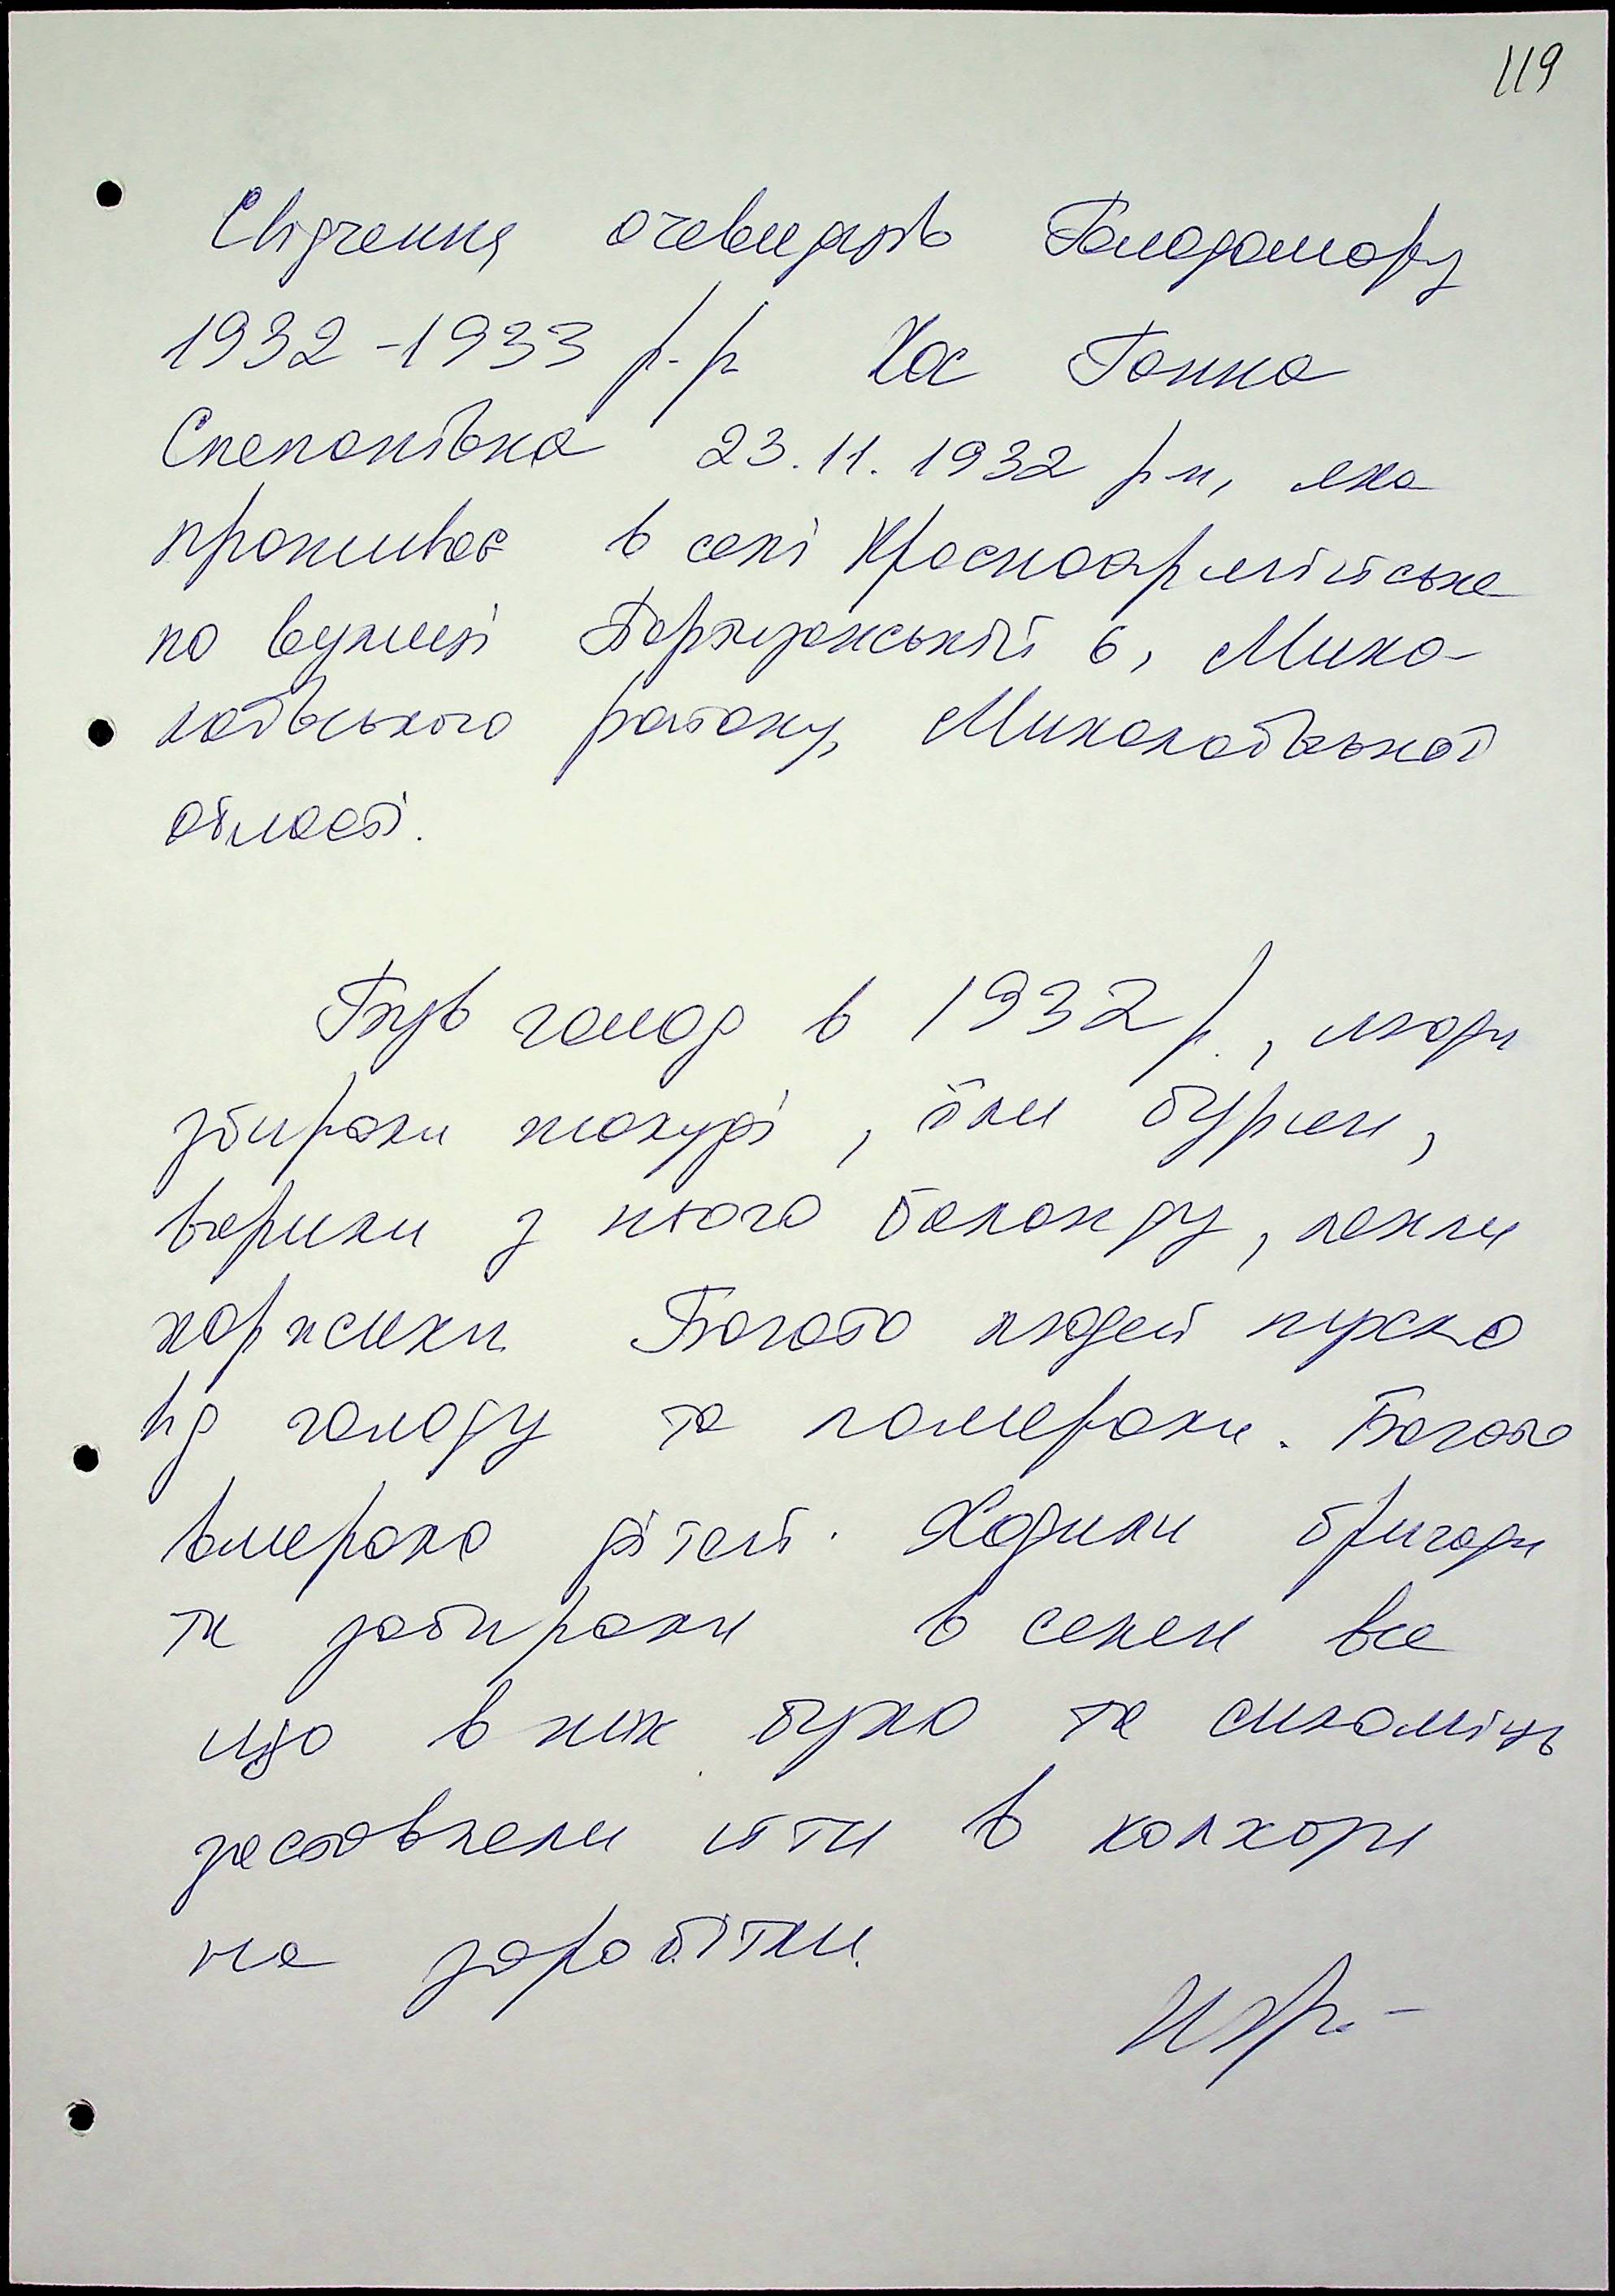 119
Свідчення очевидців Голодомору
1932-1933 р.р Хас Ганна
Степанівна 23.11.1932 р н, яка
проживає в селі Красноармійське
по вулиці Партизанській 6, Мико-
лаївського району, Миколаївської
області.
Був голод в 1932 р., люди
збирали жолуді, їли бурян,
варили з нього баланду, пекли
коржики. Багато людей пухло
від голоду та помирали. Багато
вмерало дітей. Ходили бригади
та забирали в селян все
що в них було та силоміць
заставляли йти в колхози
на заробітки.